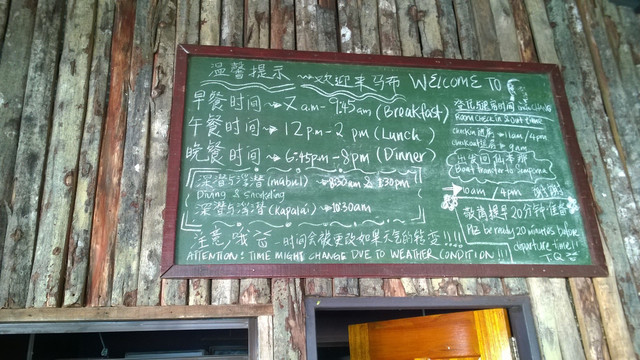 温馨提示 欢迎来马布 WELCOME TO
早餐时间 → 7am - 9:45am (Breakfast)
午餐时间 → 12pm - 2pm (Lunch)
晚餐时间 → 6:45pm - 8pm (Dinner)
深潜与浮潜 (mabul) → 8:30am & 2:30pm
Diving & Snorkeling
深潜与浮潜 (Kapalai) → 10:30am
注意哦 时间会被更改如果天气的转变!!!!
ATTENTION! TIME MIGHT CHANGE DUE TO WEATHER CONDITION!!!
时间
Room check in & Out time
checkin → 11am/4pm
checkout → 9am
出发回仙本那
Boat transfer to Semporna
→ 10am / 4pm
敬请提早20分钟准备
Plz be ready 20 minutes before
departure time!!
T.Q